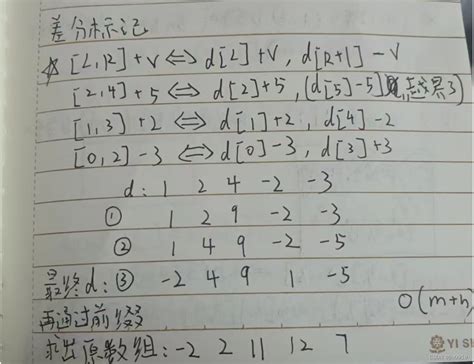 差分标记
☆ [L,R]+V ⇔ d[L]+V, d[R+1]-V
[2,4]+5 ⇔ d[2]+5, (d[5]-5 越界了)
[1,3]+2 ⇔ d[1]+2, d[4]-2
[0,2]-3 ⇔ d[0]-3, d[3]+3
d: 1 2 4 -2 -3
① 1 2 9 -2 -3
② 1 4 9 -2 -5
最终d: ③ -2 4 9 1 -5
O(m+n)
再通过前缀
求出原数组: -2 2 11 12 7